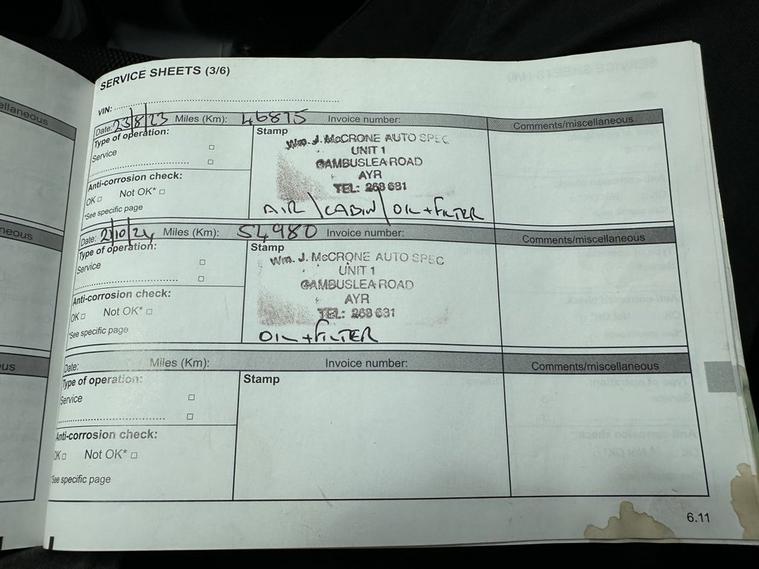 SERVICE SHEETS (3/6)
VIN:
Date: 23/8/23 Miles (Km): 46875 Invoice number: Comments/miscellaneous
Type of operation:
Service
Anti-corrosion check:
OK Not OK*
*See specific page
Stamp
Wm. J. McCRONE AUTO SPEC
UNIT 1
GAMBUSLEA ROAD
AYR
TEL: 268 681
AIR \ CABIN / OIL + FILTER
Date: 2/10/24 Miles (Km): 54980 Invoice number: Comments/miscellaneous
Type of operation:
Service
Anti-corrosion check:
OK Not OK*
*See specific page
Stamp
Wm. J. McCRONE AUTO SPEC
UNIT 1
GAMBUSLEA ROAD
AYR
TEL: 268 681
OIL + FILTER
Date: Miles (Km): Invoice number: Comments/miscellaneous
Type of operation:
Service
Anti-corrosion check:
OK Not OK*
*See specific page
Stamp
6.11